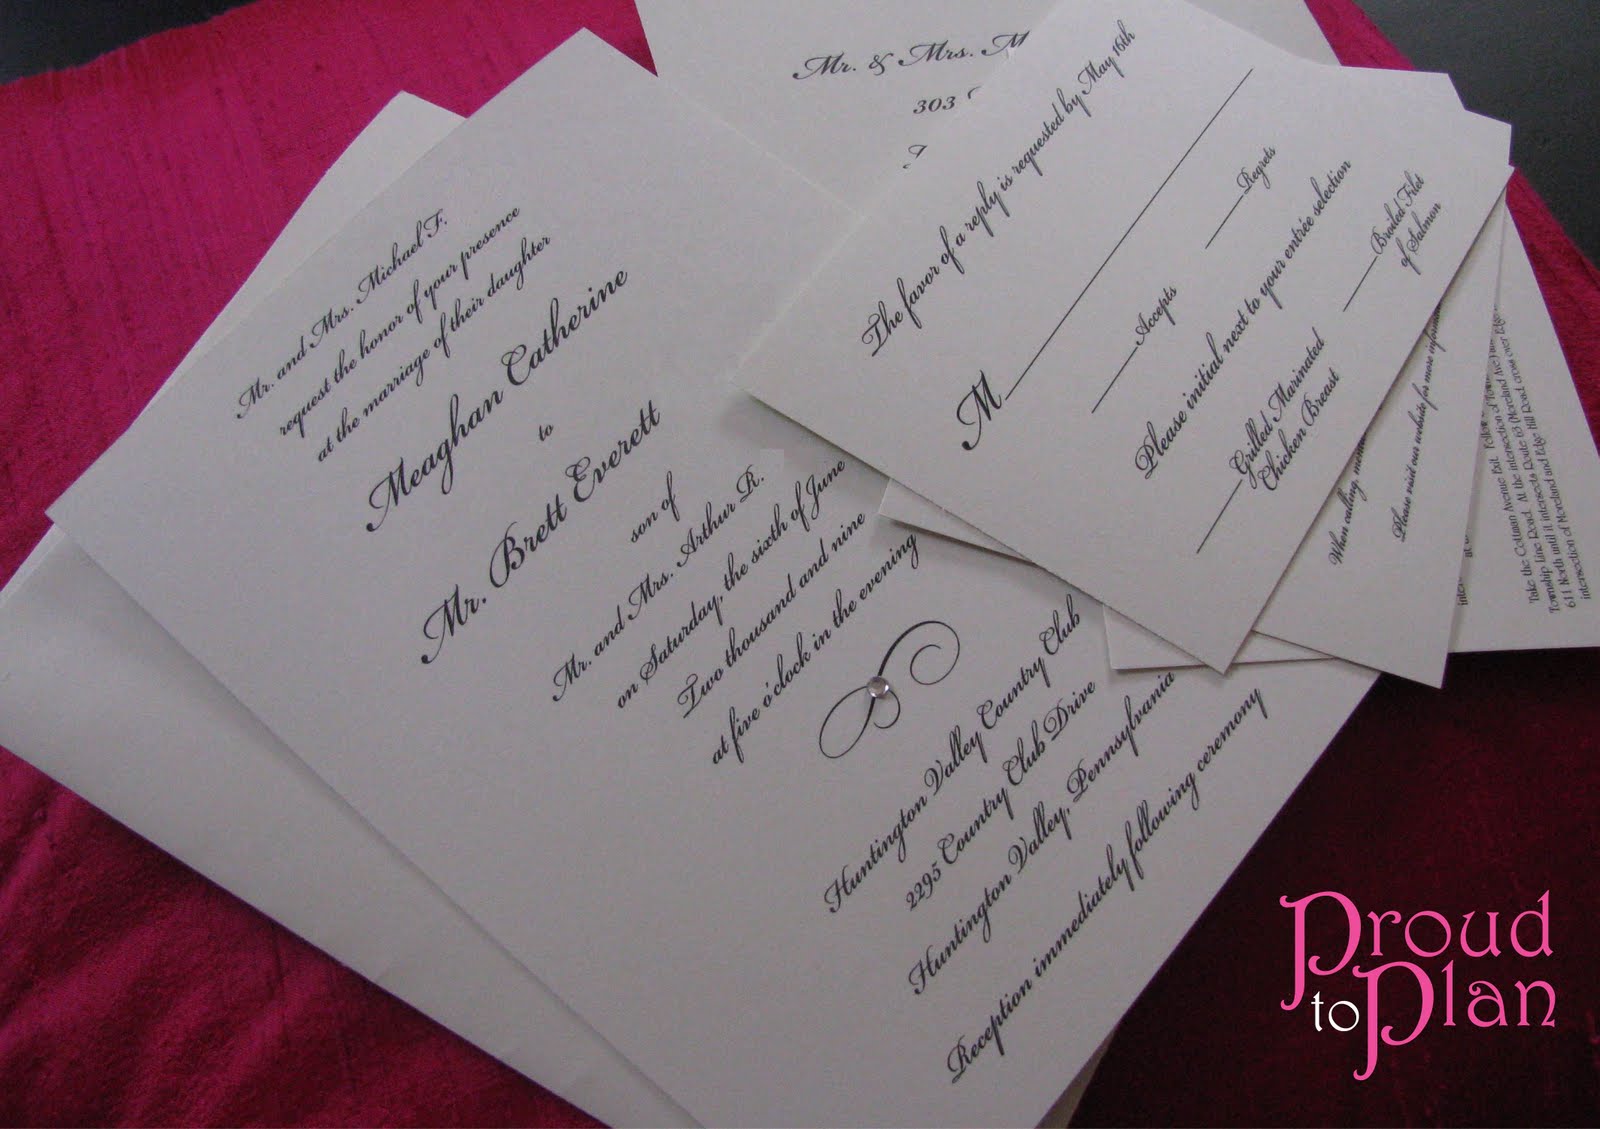 Mr. and Mrs. Michael F.
request the honor of your presence
at the marriage of their daughter
Meaghan Catherine
to
Mr. Brett Everett
son of
Mr. and Mrs. Arthur R.
on Saturday, the sixth of June
Two thousand and nine
at five o'clock in the evening
Huntington Valley Country Club
2295 Country Club Drive
Huntington Valley, Pennsylvania
Reception immediately following ceremony
Mr. & Mrs. M
303
The favor of a reply is requested by May 16th
M
Accepts Regrets
Please initial next to your entrée selection
Grilled Marinated
Chicken Breast
Broiled Filet
of Salmon
When calling,
Please visit our website for more
Take the Cottman Avenue Exit.
Township Line Road. At the intersection of
611 North until it intersects Route 63 (Moreland cross over Edge
intersection of Moreland and Edge Hill Road.
Proud
to Plan